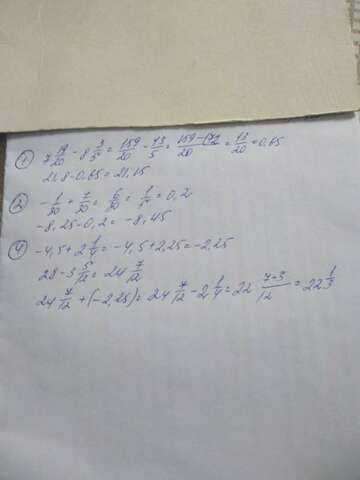 ① 7 19/20 - 8 3/5 = 159/20 - 43/5 = 159-172/20 = 13/20 = 0,65
21,8-0,65=21,15
② -1/20 + 7/20 = 6/30 = 1/5 = 0,2
-8,25-0,2=-8,45
④ -4,5+2 1/4=-4,5+2,25=-2,25
28-3 5/12=24 7/12
24 7/12+(-2,25)=24 7/12-2 1/4=22 7-3/12=22 1/3